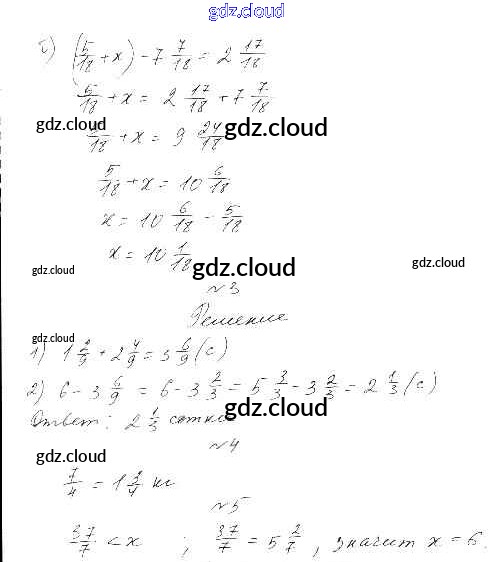 gdz.cloud
б) (5/18 + x) - 7 7/18 = 2 17/18
5/18 + x = 2 17/18 + 7 7/18
gdz.cloud
5/18 + x = 9 24/18
gdz.cloud
5/18 + x = 10 6/18
x = 10 6/18 - 5/18
x = 10 1/18
gdz.cloud
gdz.cloud
gdz.cloud
№3
Решение
gdz.cloud
1) 1 2/9 + 2 4/9 = 3 6/9 (с)
2) 6 - 3 6/9 = 6 - 3 2/3 = 5 3/3 - 3 2/3 = 2 1/3 (с)
gdz.cloud
Ответ: 2 1/3 сотки
№4
gdz.cloud
7/4 = 1 3/4 кг
gdz.cloud
№5
37/7 < x ; 37/7 = 5 2/7, значит x = 6.
gdz.cloud
gdz.cloud